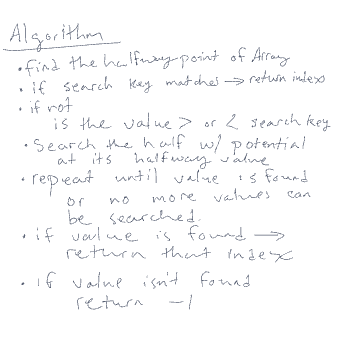 Algorithm
• find the halfway point of Array
• if search key matches → return index
• if not
is the value > or < search key
• Search the half w/ potential
at its halfway value
• repeat until value is found
or no more values can
be searched.
• if value is found →
return that index
• if value isn't found
return -1